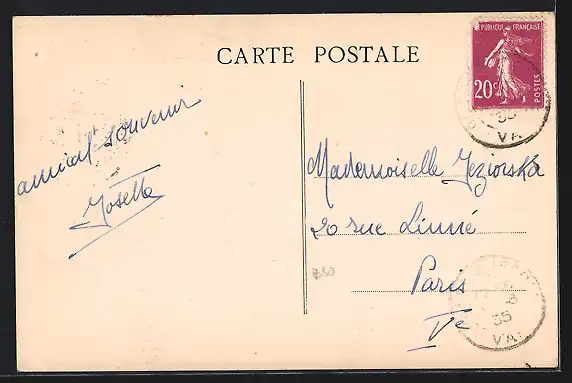 CARTE POSTALE
REPUBLIQUE FRANÇAISE
20c
POSTES
35
VAR
amical souvenir
Josette
Mademoiselle Jeziorska
20 rue Linné
Paris
Ve
B50
8
35
VAR